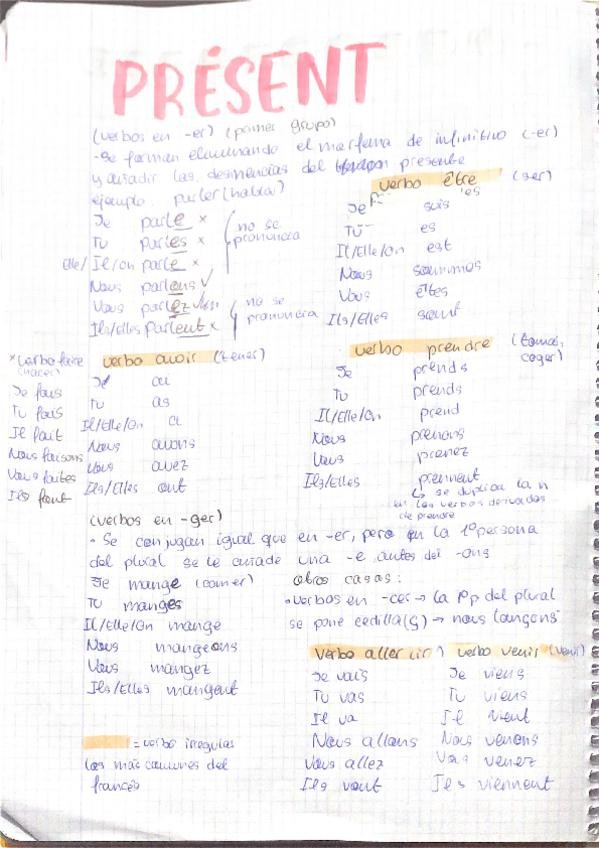 PRÉSENT
(verbos en -er) (primer grupo)
-Se forman eliminando el morfema de infinitivo (-er)
y añadir las desinencias del presente
ejemplo: parler (hablar)
Je parle x
Tu parles x
Elle/ Il/on parle x
no se pronuncia
Nous parlons ✓
Vous parlez ✓
Ils/Elles parlent x
no se pronuncia
verbo être (ser)
Je suis
Tu es
Il/Elle/on est
Nous sommes
Vous êtes
Ils/Elles sont
*verbo faire
(hacer)
Je fais
Tu fais
Il fait
Nous faisons
Vous faites
Ils font
verbo avoir (tener)
J' ai
Tu as
Il/Elle/on a
Nous avons
Vous avez
Ils/Elles ont
verbo prendre (tomar, coger)
Je prends
Tu prends
Il/Elle/On prend
Nous prenons
Vous prenez
Ils/Elles prennent
↳ se duplica la n
en los verbos derivados
de prendre
(verbos en -ger)
• Se conjugan igual que en -er, pero en la 1ª persona
del plural se le añade una -e antes del -ons
Je mange (comer)
Tu manges
Il/Elle/on mange
Nous mangeons
Vous mangez
Ils/Elles mangent
otros casos:
• verbos en -cer → la 1ªp del plural
se pone cedilla (ç) → nous lançons
verbo aller (ir)
Je vais
Tu vas
Il va
Nous allons
Vous allez
Ils vont
verbo venir (venir)
Je viens
Tu viens
Il vient
Nous venons
Vous venez
Ils viennent
= verbo irregular
los más comunes del
francés